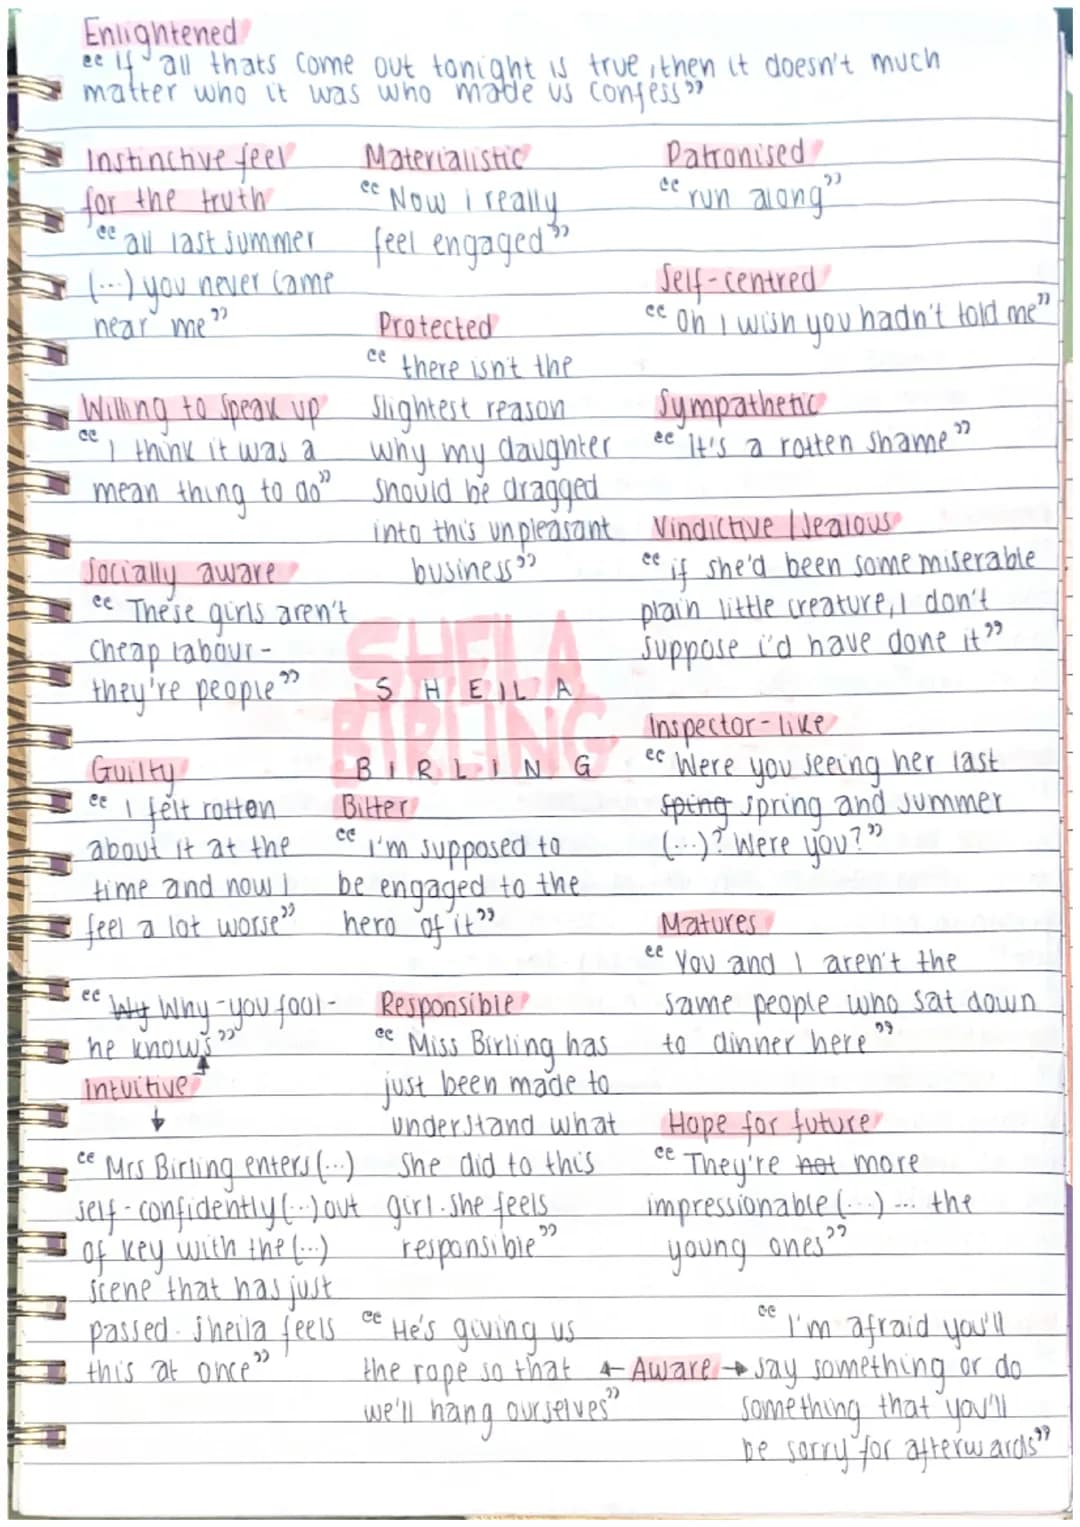 Enlightened
"If all thats come out tonight is true, then it doesn't much
matter who it was who made us confess"
Instinctive feel
for the truth
"all last summer
(...) you never came
near me"
Materialistic
"Now I really
feel engaged"
Patronised
"run along"
Self-centred
"Oh I wish you hadn't told me"
Protected
"there isn't the
slightest reason
why my daughter
should be dragged
into this unpleasant
business"
Willing to speak up
"I think it was a
mean thing to do"
Sympathetic
"It's a rotten shame"
Vindictive / Jealous
"if she'd been some miserable
plain little creature, I don't
suppose i'd have done it"
Socially aware
"These girls aren't
cheap labour -
they're people"
SHEILA
BIRLING
S H E I L A
B I R L I N G
Inspector-like
"Were you seeing her last
sping spring and summer
(...)? Were you?"
Guilty
"I felt rotten
about it at the
time and now I
feel a lot worse"
Bitter
"i'm supposed to
be engaged to the
hero of it"
Matures
"You and I aren't the
same people who sat down
to dinner here"
"Wy Why - you fool -
he knows"
Intuitive
"Mrs Birling enters (...)
self-confidently (...) out
of key with the (...)
scene that has just
passed. Sheila feels
this at once"
Responsible
"Miss Birling has
just been made to
understand what
she did to this
girl. She feels
responsible"
Hope for future
"They're not more
impressionable (...) ... the
young ones"
"He's giving us
the rope so that
we'll hang ourselves"
← Aware →
"I'm afraid you'll
say something or do
something that you'll
be sorry for afterwards"